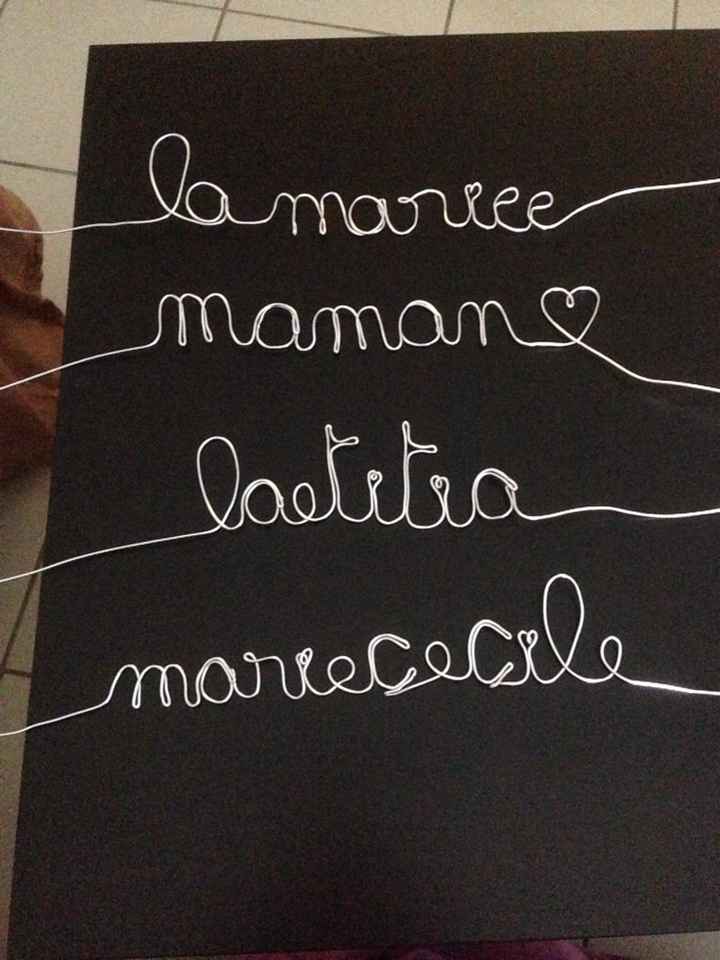 la mariee
maman
laetitia
mariececile